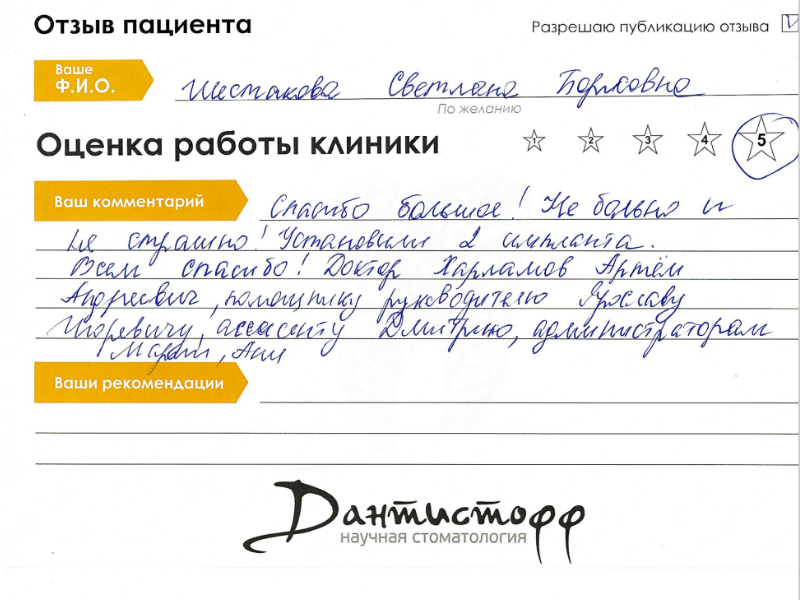 Отзыв пациента
Разрешаю публикацию отзыва
Ваше
Ф.И.О.
Шестакова Светлана Борисовна
По желанию
Оценка работы клиники
1 2 3 4 5
Ваш комментарий
Спасибо большое! Не больно и
не страшно! Установили 2 импланта.
Всем спасибо! Доктор Харламов Артём
Андреевич, помощнику руководителю Ярославу
Игоревичу, ассистенту Дмитрию, администраторам
Марии, Ани
Ваши рекомендации
Дантистофф
научная стоматология